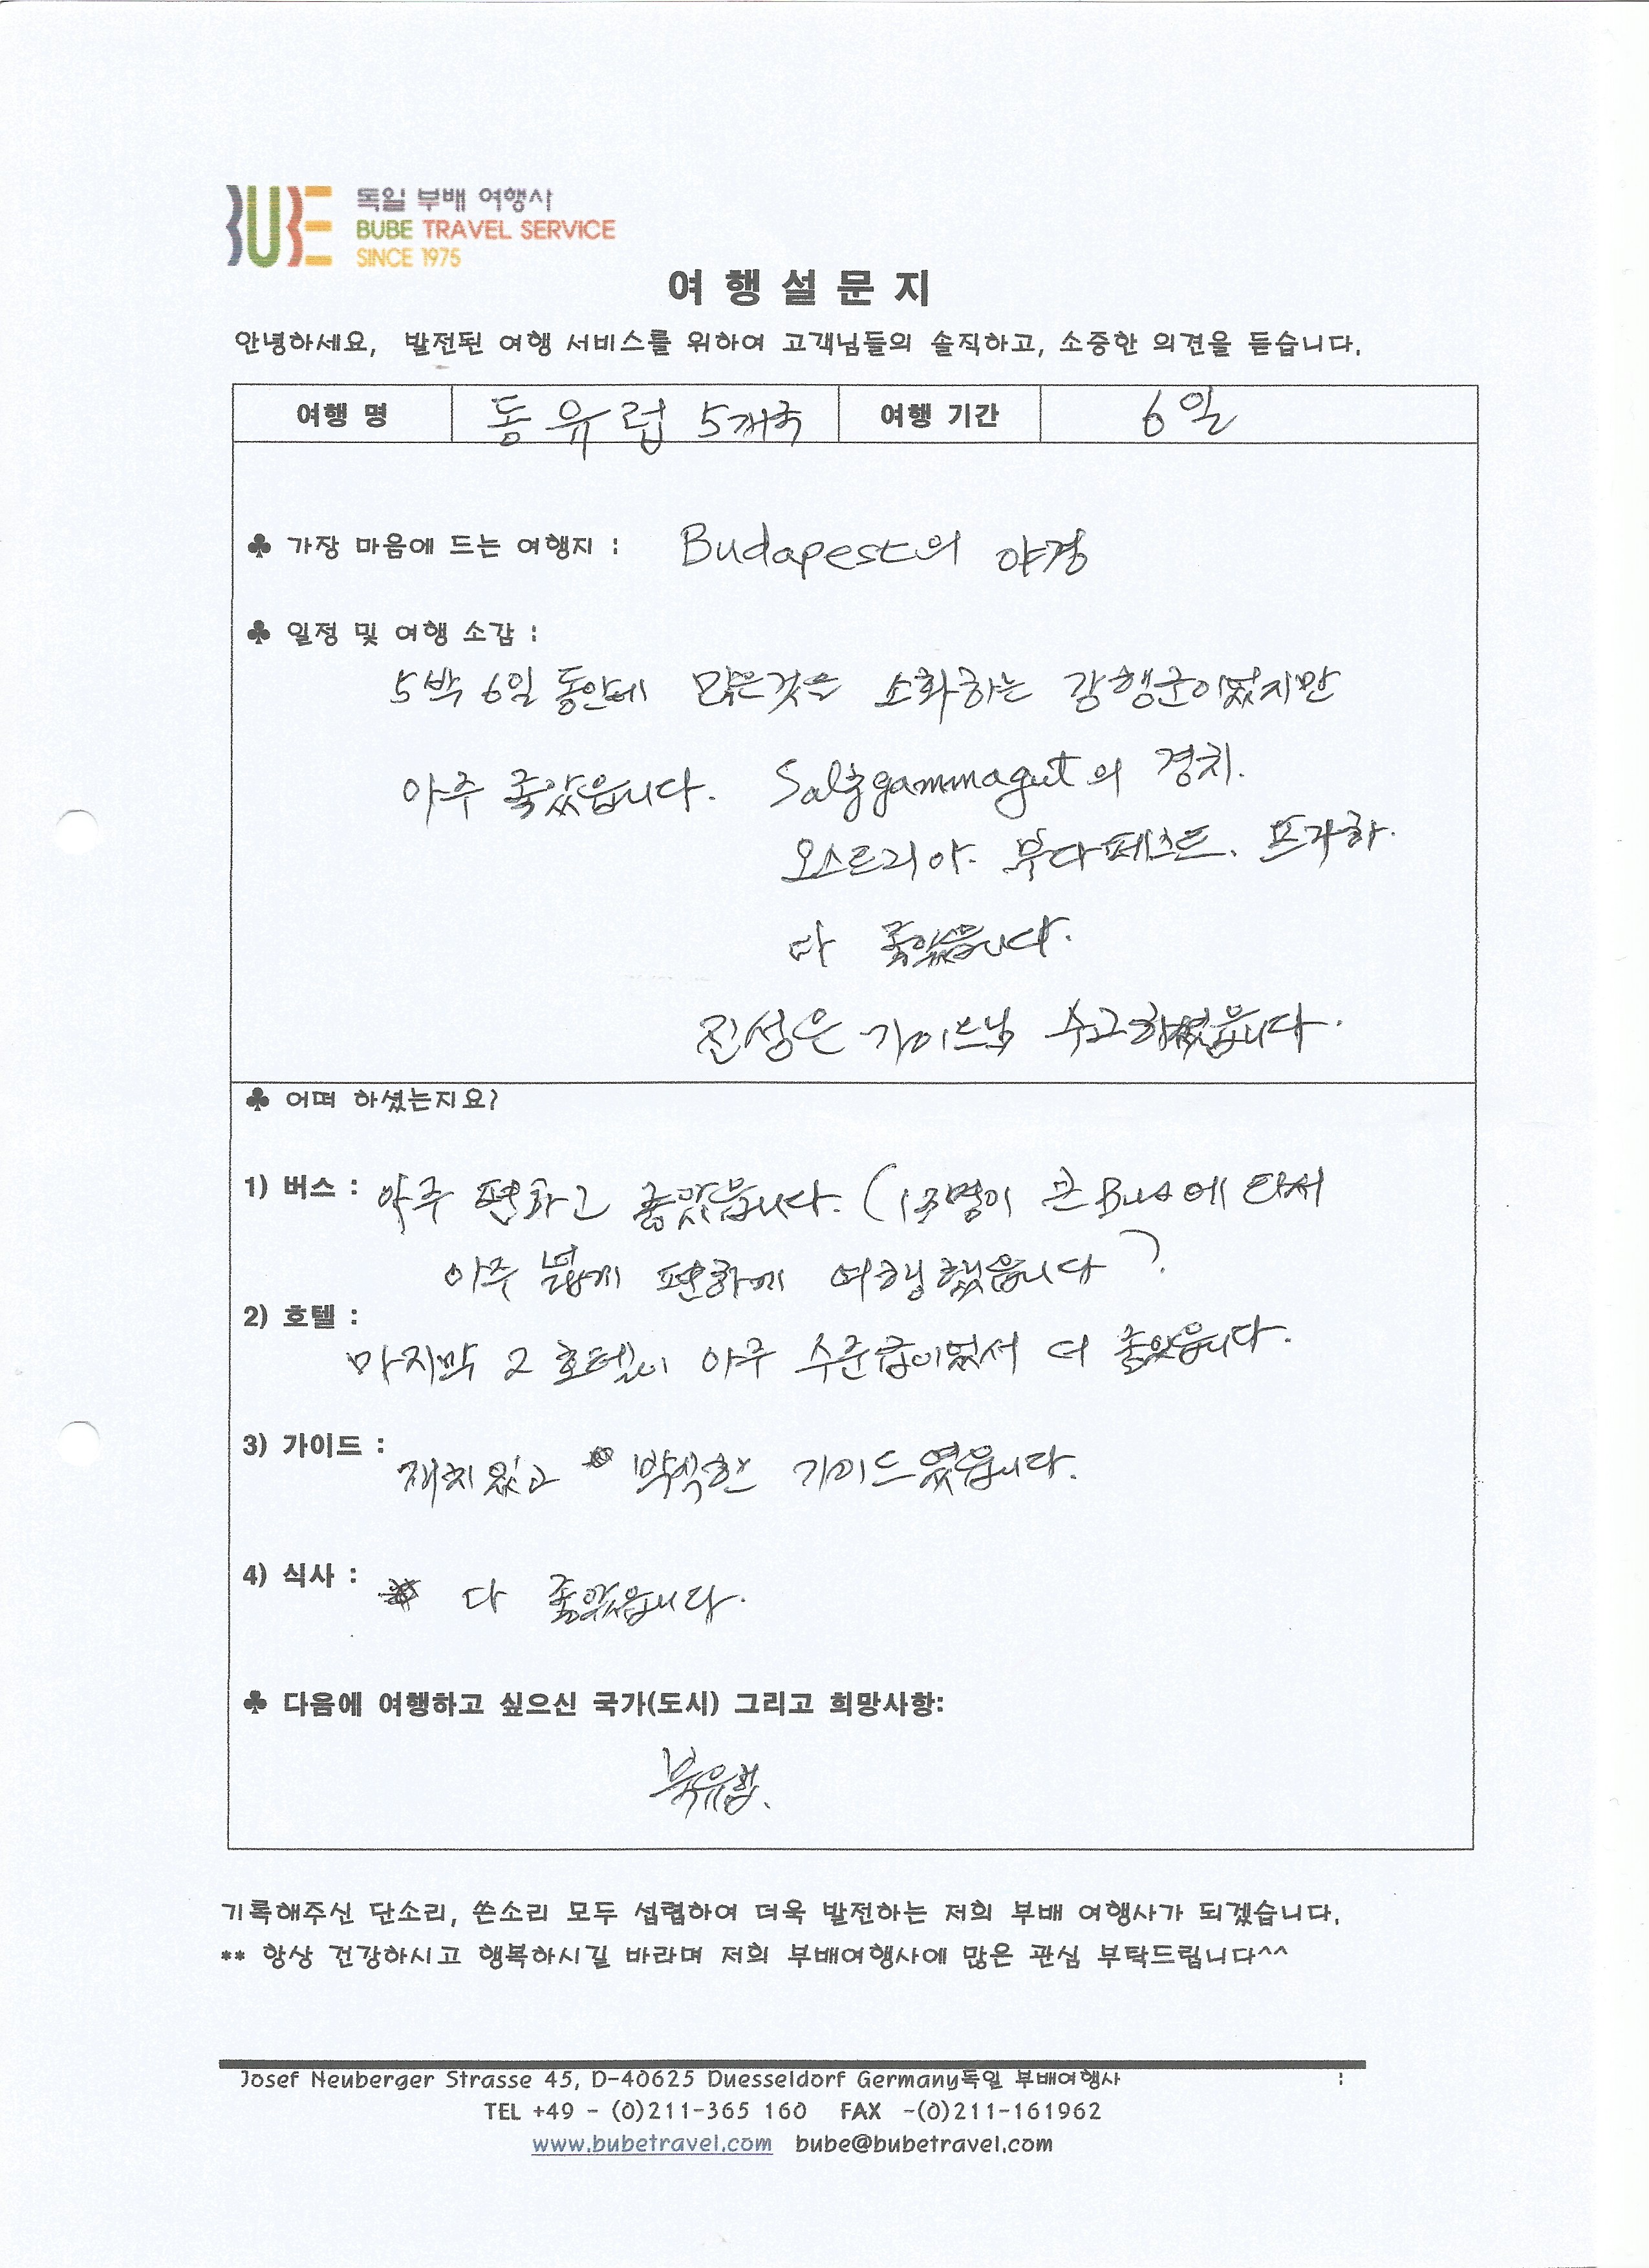 독일 부배 여행사
BUBE TRAVEL SERVICE
SINCE 1975
여 행 설 문 지
안녕하세요, 발전된 여행 서비스를 위하여 고객님들의 솔직하고, 소중한 의견을 듣습니다.
여행 명 동유럽 5개국 여행 기간 6일
♣ 가장 마음에 드는 여행지 : Budapest의 야경
♣ 일정 및 여행 소감 :
5박 6일 동안에 많은것을 소화하는 강행군이었지만
아주 좋았읍니다. Salzgammagut의 경치.
오스트리아. 부다페스트. 프라하.
다 좋았읍니다.
진성은 가이드님 수고하셨읍니다.
♣ 어떠 하셨는지요?
1) 버스 : 아주 편하고 좋았읍니다. (13명이 큰 Bus에 타서
아주 넓게 편하게 여행했읍니다)
2) 호텔 :
마지막 2 호텔이 아주 수준급이었서 더 좋았읍니다.
3) 가이드 : 재치있고 박식한 가이드였읍니다.
4) 식사 : 다 좋았읍니다.
♣ 다음에 여행하고 싶으신 국가(도시) 그리고 희망사항:
북유럽.
기록해주신 단소리, 쓴소리 모두 섭렵하여 더욱 발전하는 저희 부배 여행사가 되겠습니다.
** 항상 건강하시고 행복하시길 바라며 저희 부배여행사에 많은 관심 부탁드립니다^^
Josef Neuberger Strasse 45, D-40625 Duesseldorf Germany독일 부배여행사 :
TEL +49 - (0)211-365 160 FAX -(0)211-161962
www.bubetravel.com bube@bubetravel.com